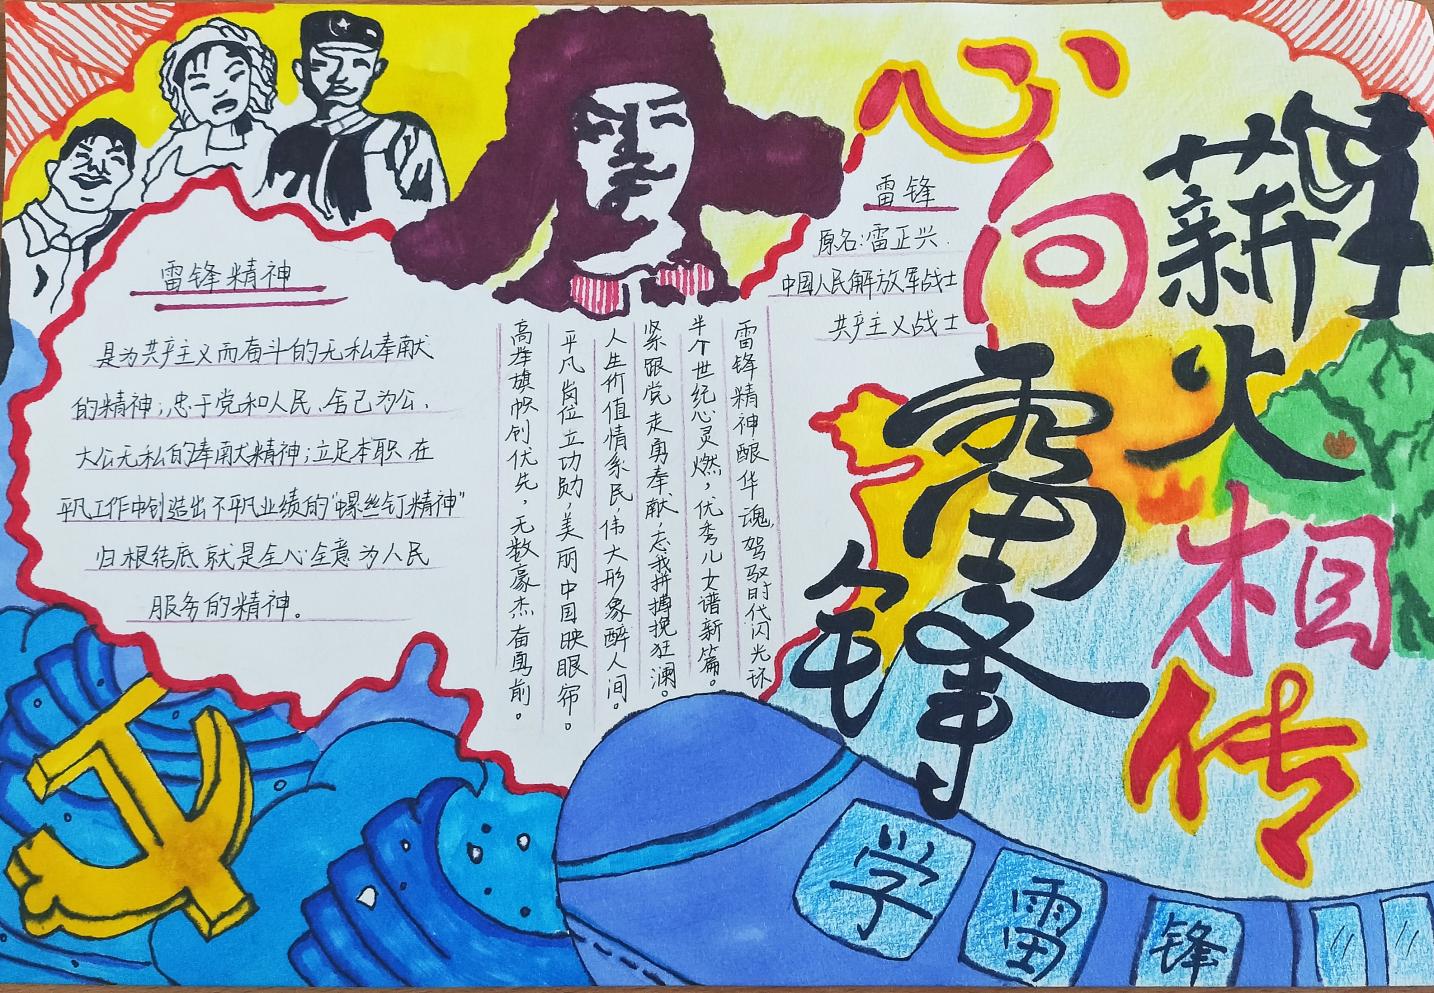 心向雷锋
薪火相传
雷锋
原名:雷正兴.
中国人民解放军战士
共产主义战士
雷锋精神
是为共产主义而奋斗的无私奉献
的精神;忠于党和人民、舍己为公、
大公无私的奉献精神;立足本职、在
平凡工作中创造出不平凡业绩的"螺丝钉精神"
归根结底就是全心全意为人民
服务的精神。
雷锋精神酿华魂,驾驭时代闪光环
半个世纪心灵燃,优秀儿女谱新篇。
紧跟党走勇奉献,忘我拼搏挽狂澜。
人生价值情系民,伟大形象醉人间。
平凡岗位立功勋,美丽中国映眼帘。
高举旗帜创优先,无数豪杰奋勇前。
学雷锋